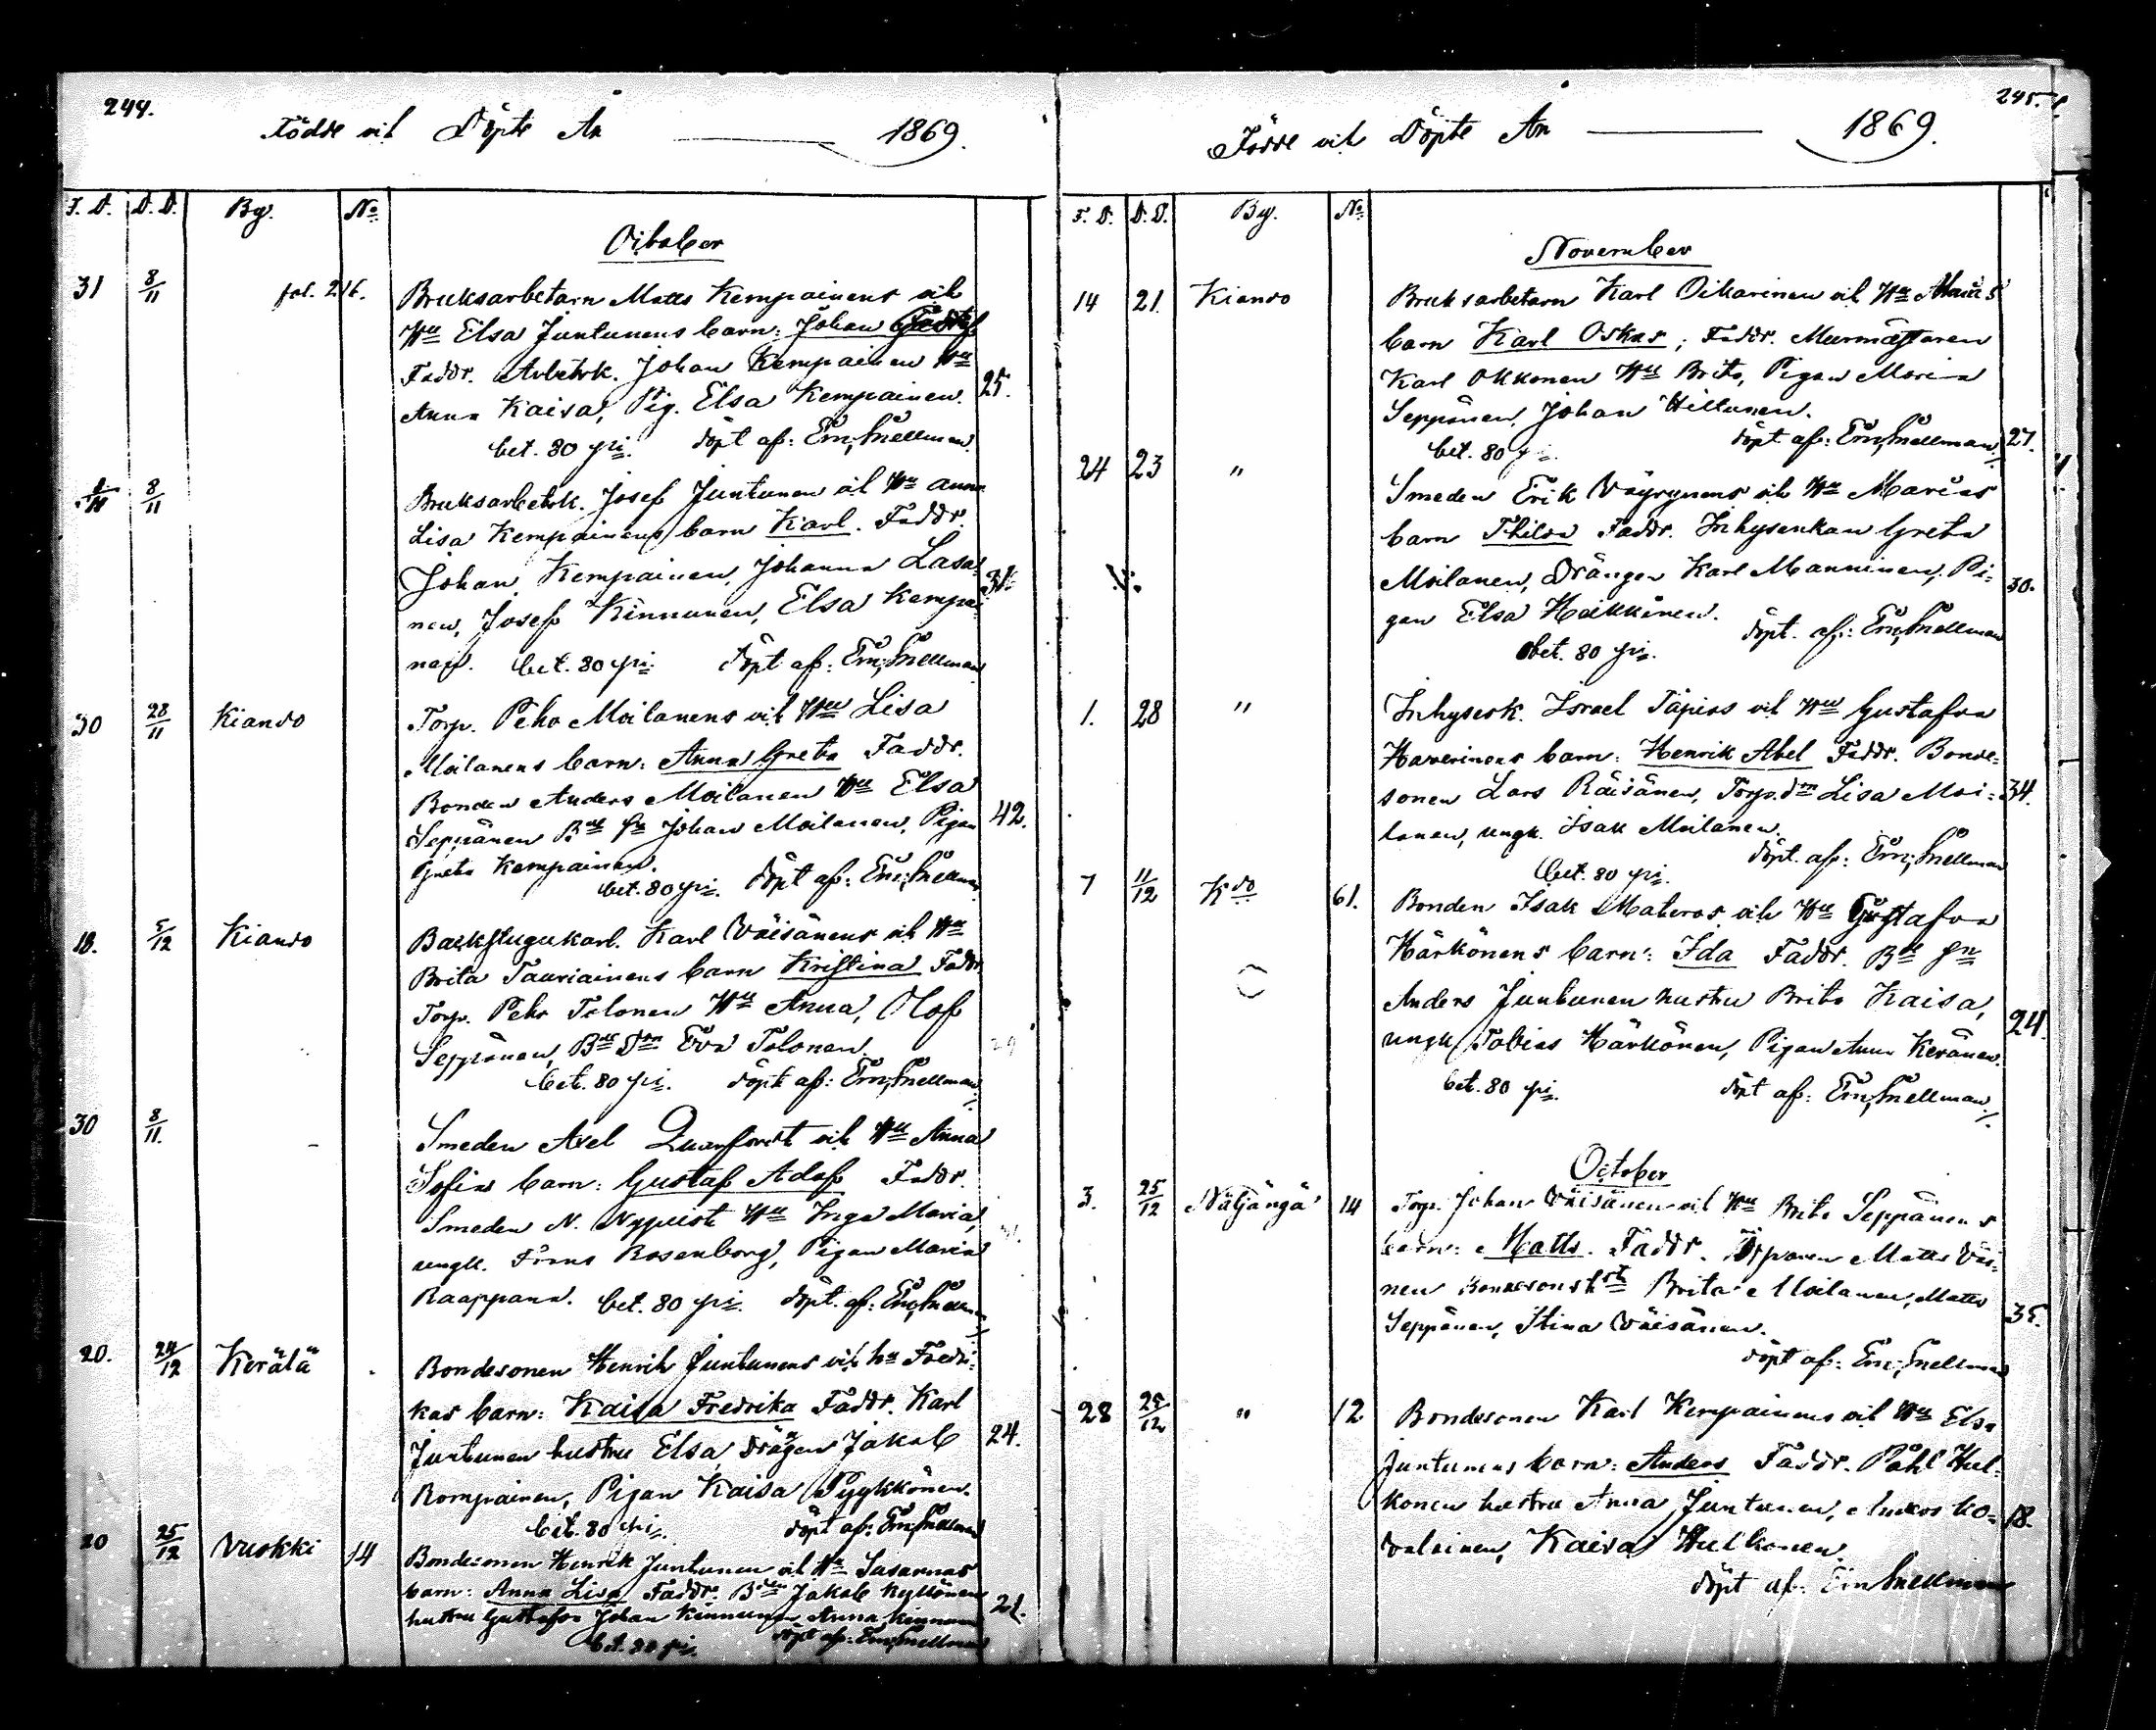 244.
Födde och Döpte År 1869.
F. D. D. D. By. No
October
31 8/11 fol. 216. Bruksarbetarn Matts Kempainens och
Hu Elsa Juntunens barn: Johan Gustaf
Faddr. Arbetsk. Johan Kempainen Hu
Anna Kaisa, Pig. Elsa Kempainen. 25.
bet. 80 pi. döpt af: Em; Snellman
8/11 Bruksarbetsk. Josef Juntunen och Hu Anna
Lisa Kempainens barn Karl. Faddr.
Johan Kempainen, Johanna Lasa- 31.
nen, Josef Kinnunen, Elsa Kempai-
nen. bet. 80 pi. döpt af: Em; Snellman
30 28/11 Kiando Torp. Peho Moilanens och Hu Lisa
Moilanens barn: Anna Greta Faddr.
Bonden Anders Moilanen Hu Elsa
Seppänen Bde Sn Johan Moilanen, Pigan 42.
Greta Kempainen.
bet. 80 pi. döpt af: Em; Snellman
18. 5/12 Kiando Backstugukarl. Karl Väisänens och Hu
Brita Tauriainens barn Kristina Faddr.
Torp. Pehr Tolonen Hu Anna, Olof
Seppänen, Bde Dtn Eva Tolonen. 29
bet. 80 pi. döpt af: Em; Snellman
30 8/11. Smeden Axel Quarforth och Hu Anna
Sofias barn: Gustaf Adolf Faddr.
Smeden N. Nyquist Hu Inga Maria,
ungk. Frans Rosenborg, Pigan Maria
Raappana. bet. 80 pi. döpt. af: Em; Snellman
20. 24/12 Kerälä Bondesonen Henrik Juntunens och hu Fredri-
kas barn: Kaisa Fredrika Faddr. Karl
Juntunen hustru Elsa, drängen Jakob 24.
Kompainen, Pigan Kaisa Pyykkönen.
bet. 80 pi. döpt af: Em; Snellman
20 25/12 Vuokki 14 Bondesonen Henrik Juntunen och Hu Susannas
barn: Anna Lisa Faddr. Bden Jakob Kyllönen
hustru Gustafva Johan Kinnunen Anna Kinnunen 21.
bet. 80 pi. döpt af: Em; Snellman
245.
Födde och Döpte År 1869.
F. D. D. D. By. No
November
14 21. Kiando Bruksarbetarn Karl Oikarinen och Hu Marias
barn Karl Oskar; Faddr. Murmästaren
Karl Okkonen Hu Brita, Pigan Maria
Seppänen, Johan Hiltunen.
bet. 80 pi. döpt af: Em; Snellman 27.
24 23 " Smeden Erik Väyrynens och Hu Marias
barn Thilda Faddr. Inhysenkan Greta
Moilanen, Drängen Karl Manninen, Pi- 30.
gan Elsa Heikkinen.
bet. 80 pi. döpt. af: Em; Snellman
1. 28 " Inhysesk. Israel Tapios och Hu Gustafva
Haverinens barn: Henrik Abel Faddr. Bonde-
sonen Lars Räisänen, Torp. dtn Lisa Moi- 34.
lanen, ungk. Isak Moilanen.
bet. 80 pi. döpt. af: Em; Snellman
7 11/12 Kdo 61. Bonden Isak Materos och Hu Gustafva
Härkönens barn: Ida Faddr. Bde Sn
Anders Juntunen hustru Brita Kaisa, 24.
ungk Tobias Härkönen, Pigan Anna Keränen.
bet. 80 pi. döpt af: Em; Snellman
October
3. 25/12 Näljängä 14 Torp. Johan Väisänen och Hu Brita Seppänens
barn: Matts. Faddr. Torparen Matts Väisä-
nen Bondesons hst Brita Moilanen, Matts
Seppänen, Stina Väisänen. 35.
döpt af: Em; Snellman
28 25/12 " 12 Bondesonen Karl Kempainens och Hu Elsa
Juntunens barn: Anders Faddr. Påhl Hul-
konen hustru Anna Juntunen, Anders Ko- 18.
valainen, Kaisa Hulkonen.
döpt af: Em Snellman